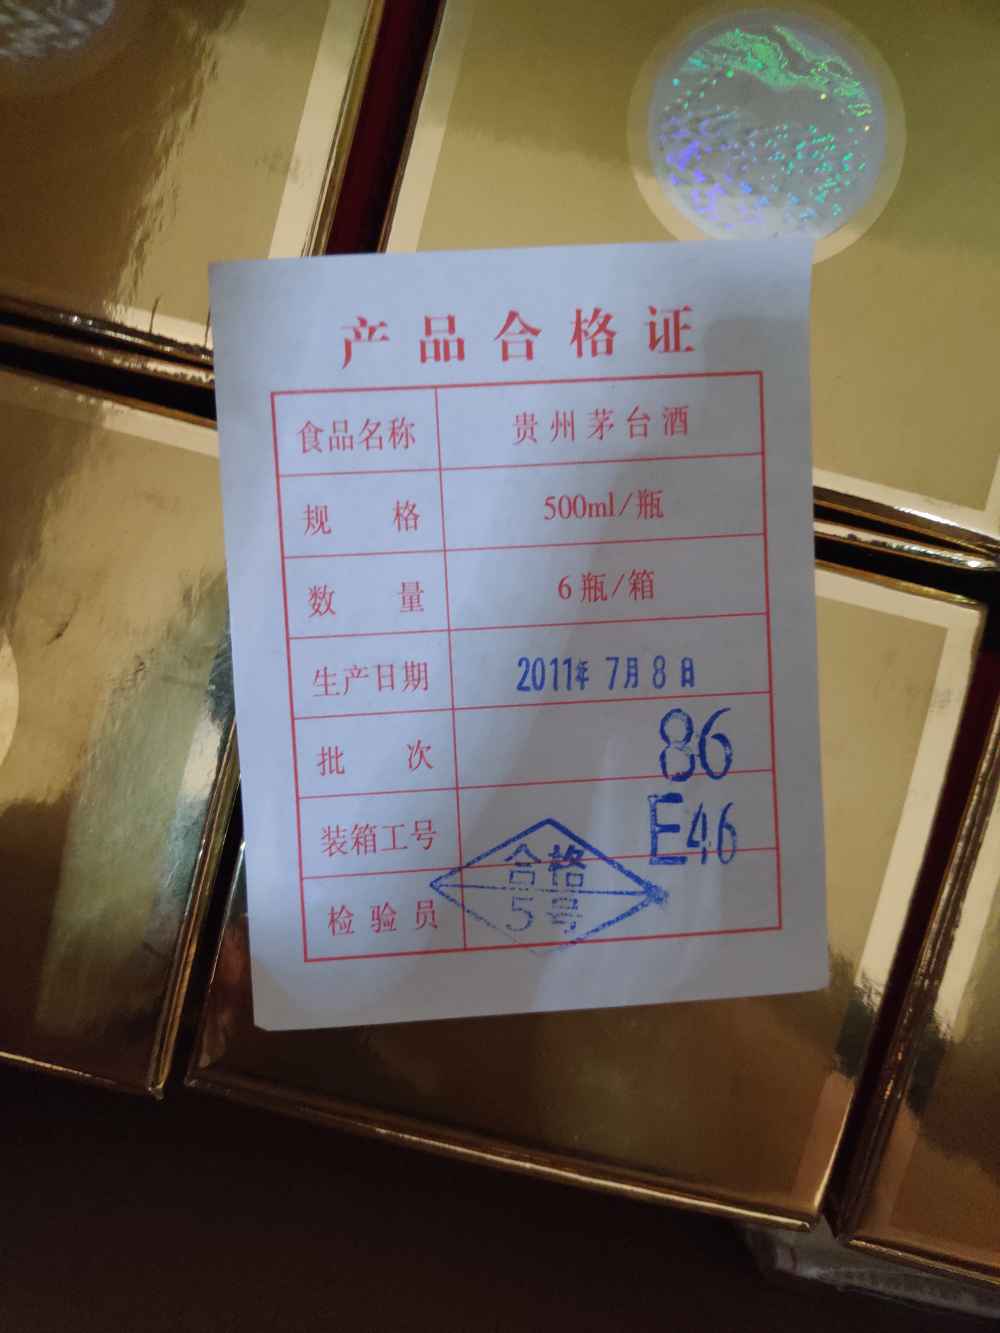 产品合格证
食品名称 贵州茅台酒
规格 500ml/瓶
数量 6瓶/箱
生产日期 2011年7月8日
批次 86
装箱工号 E46
检验员 合格
5号